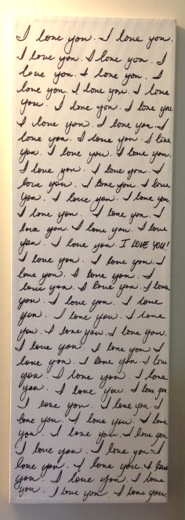 I love you. I love you.
I love you. I love you. I
love you. I love you. I
love you. I love you. I love
you. I love you. I love you
I love you. I love you. I
love you. I love you. I love
you. I love you. I love you.
I love you. I love you. I
love you. I love you. I love
you. I love you. I love you.
I love you. I love you. I
love you. I love you. I love
you. I love you I LOVE YOU!
I love you. I love you. I
love you. I love you. I
love you. I love you. I love
you. I love you. I love
you. I love you. I love
you. I love you. I love you.
I love you. I love you. I
love you. I love you. I love
you. I love you. I love
you. I love you. I love you
I love you. I love you. I
love you. I love you. I love
you. I love you. I love you
I love you. I love you. I
love you. I love you. I love
you. I love you. I love
you. I love you. I love you